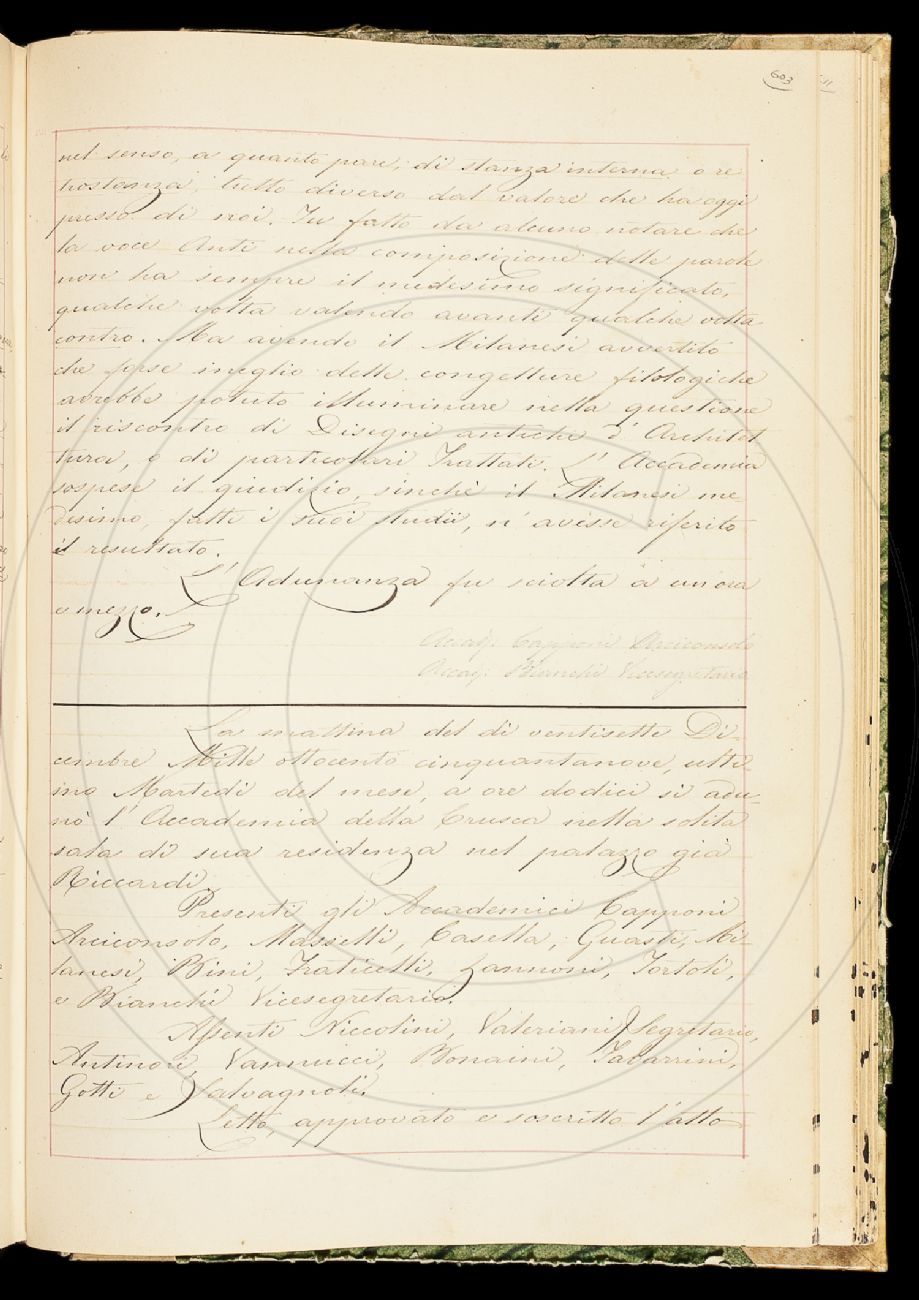 603
nel senso, a quanto pare, di stanza interna o re
trostanza, tutto diverso dal valore che ha oggi
presso di noi. Fu fatto da alcuno notare che
la voce Anti nella composizione delle parole
non ha sempre il medesimo significato,
qualche volta valendo avanti qualche volta
contro. Ma avendo il Milanesi avvertito
che forse meglio delle congetture filologiche
avrebbe potuto illuminare nella questione
il riscontro di Disegni antichi d' Architet
tura, o di particolari Trattati. L' Accademia
sospese il giudizio, sinchè il Milanesi me
desimo, fatti i suoi studii, n' avesse riferito
il resultato.
L' Adunanza fu sciolta a un ora
e mezzo.
Accad: Capponi Arciconsolo
Accad: Bianchi Vicesegretario
La mattina del dì ventisette Di-
cembre Mille ottocento cinquantanove, ulti-
mo Martedì del mese, a ore dodici si adu-
nò l' Accademia della Crusca nella solita
sala di sua residenza nel palazzo già
Riccardi.
Presenti gli Accademici Capponi
Arciconsolo, Masselli, Casella, Guasti, Mi-
lanesi, Bini, Fraticelli, Zannoni, Tortoli,
e Bianchi Vicesegretario.
Assenti Niccolini, Valeriani Segretario,
Antinori, Vannucci, Bonaini, Tabarrini,
Gotti e Salvagnoli.
Letto, approvato e soscritto l' atto